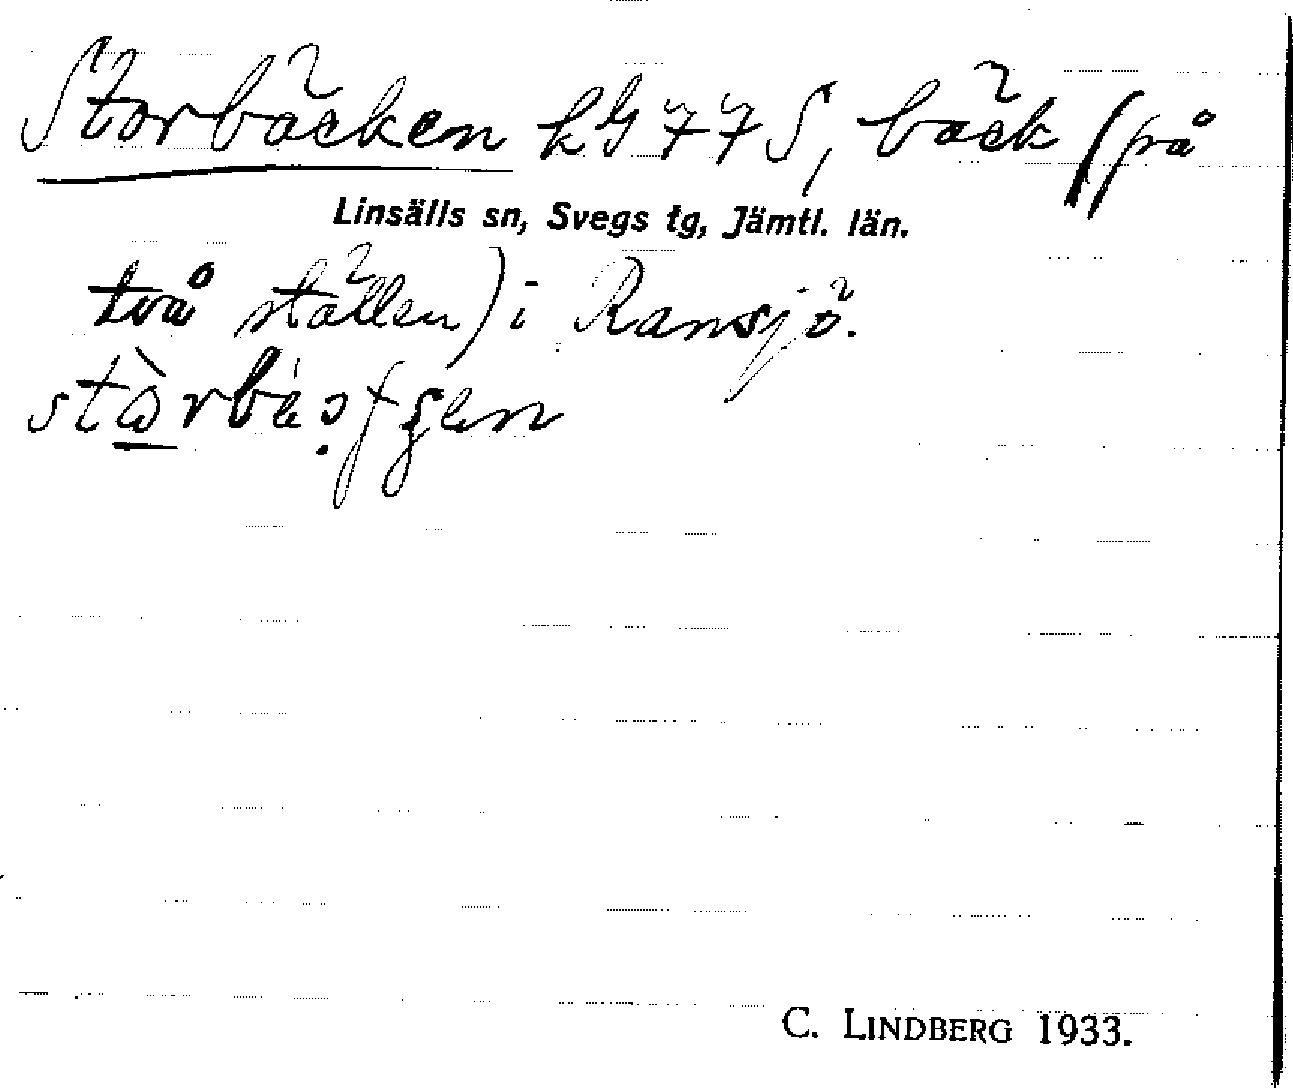 Storbäcken kG 77S, bäck (på
Linsälls sn, Svegs tg, Jämtl. län.
två ställen) i Ransjö.
C. LINDBERG 1933.